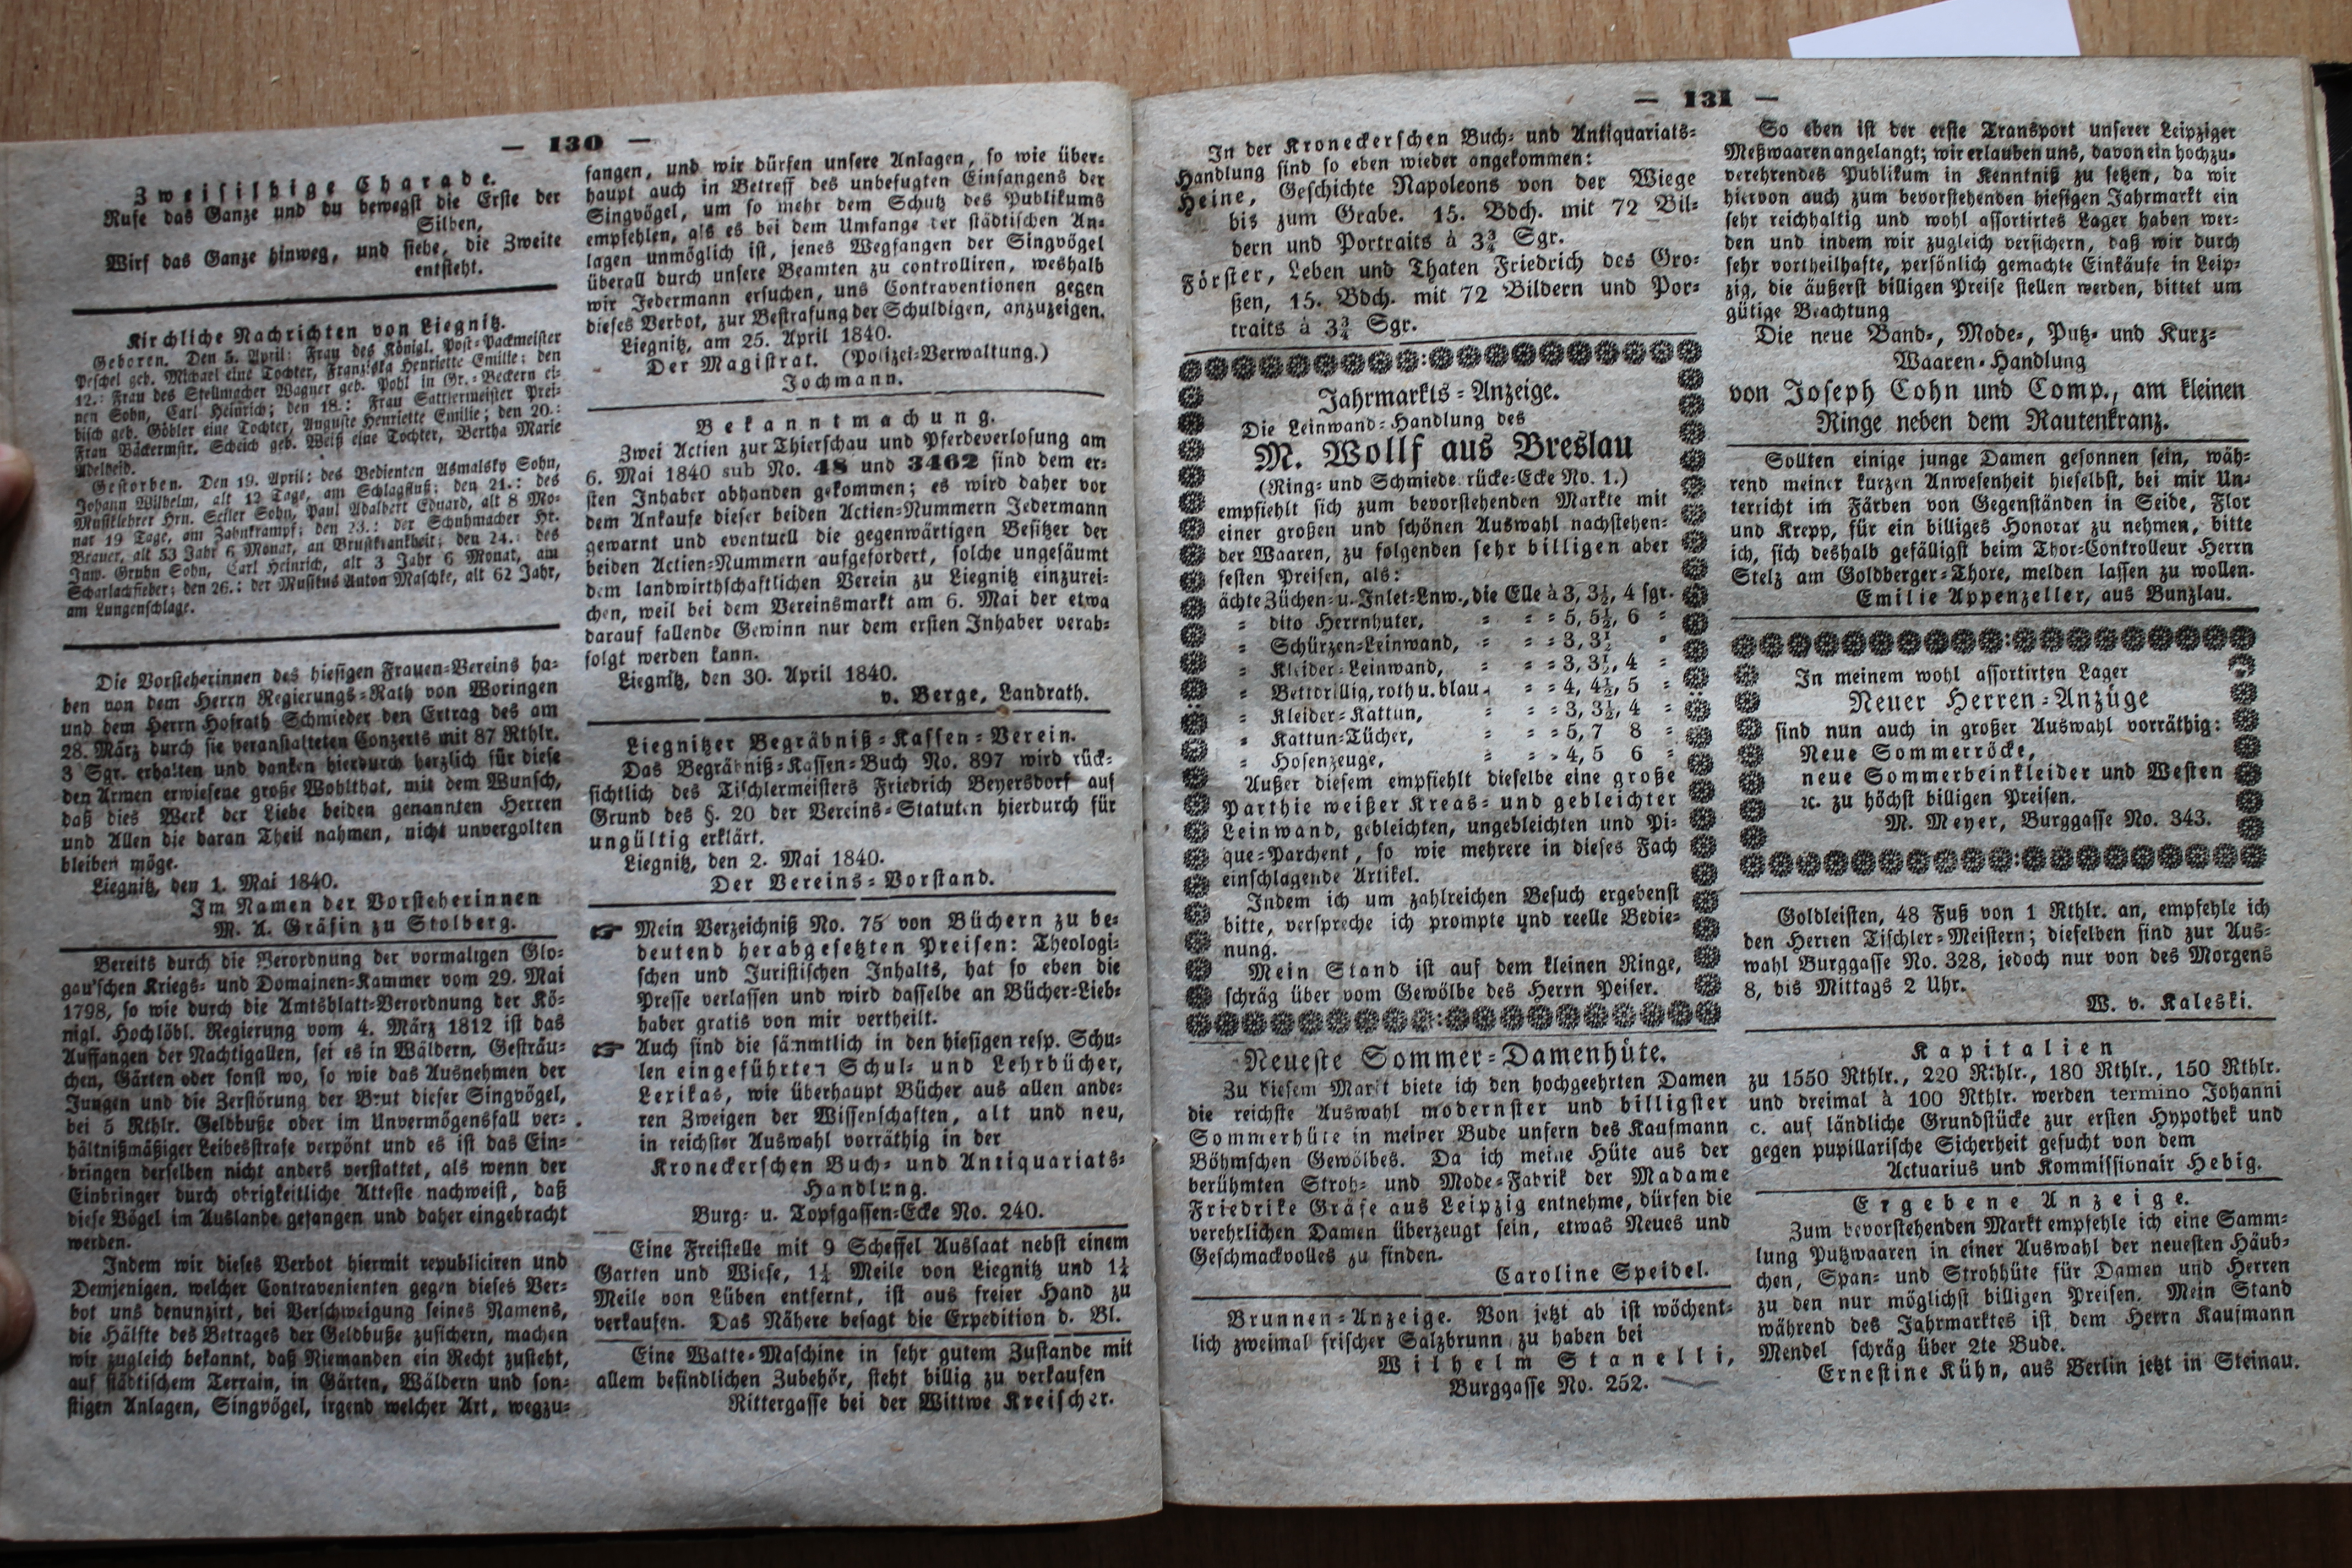 — 130 —
Zweisilbige Charade.
Rufe das Ganze und du bewegst die Erste der
Silben,
Wirf das Ganze hinweg, und siehe, die Zweite
entsteht.
Kirchliche Nachrichten von Liegnitz.
Geboren. Den 5. April: Frau des Königl. Post-Packmeister
Peschel geb. Michael eine Tochter, Franziska Henriette Emilie; den
12.: Frau des Stellmacher Wagner geb. Pohl in Gr.-Beckern ei-
nen Sohn, Carl Heinrich; den 18.: Frau Sattlermeister Prei-
bisch geb. Göbler eine Tochter, Auguste Henriette Emilie; den 20.:
Frau Bäckermstr. Scheich geb. Weiß eine Tochter, Bertha Marie
Adelheid.
Gestorben. Den 19. April: des Bedienten Asmalsky Sohn,
Johann Wilhelm, alt 12 Tage, am Schlagfluß; den 21.: des
Musiklehrer Hrn. Seiler Sohn, Paul Adalbert Eduard, alt 8 Mo-
nat 19 Tage, am Zahnkrampf; den 23.: der Schuhmacher Hr.
Brauer, alt 53 Jahr 6 Monat, an Brustkrankheit; den 24.: des
Inw. Gruhn Sohn, Carl Heinrich, alt 3 Jahr 6 Monat, am
Scharlachfieber; den 26.: der Musikus Anton Maschke, alt 62 Jahr,
am Lungenschlage.
Die Vorsteherinnen des hiesigen Frauen-Vereins ha-
ben von dem Herrn Regierungs-Rath von Woringen
und dem Herrn Hofrath Schmieder den Ertrag des am
28. März durch sie veranstalteten Conzerts mit 87 Rthlr.
3 Sgr. erhalten und danken hierdurch herzlich für diese
den Armen erwiesene große Wohlthat, mit dem Wunsch,
daß dies Werk der Liebe beiden genannten Herren
und Allen die daran Theil nahmen, nicht unvergolten
bleiben möge.
Liegnitz, den 1. Mai 1840.
Im Namen der Vorsteherinnen
M. A. Gräfin zu Stolberg.
Bereits durch die Verordnung der vormaligen Glo-
gau'schen Kriegs- und Domainen-Kammer vom 29. Mai
1798, so wie durch die Amtsblatt-Verordnung der Kö-
nigl. Hochlöbl. Regierung vom 4. März 1812 ist das
Auffangen der Nachtigallen, sei es in Wäldern, Gesträu-
chen, Gärten oder sonst wo, so wie das Ausnehmen der
Jungen und die Zerstörung der Brut dieser Singvögel,
bei 5 Rthlr. Geldbuße oder im Unvermögensfall ver-
hältnißmäßiger Leibesstrafe verpönt und es ist das Ein-
bringen derselben nicht anders verstattet, als wenn der
Einbringer durch obrigkeitliche Atteste nachweist, daß
diese Vögel im Auslande gefangen und daher eingebracht
werden.
Indem wir dieses Verbot hiermit republiciren und
Demjenigen, welcher Contravenienten gegen dieses Ver-
bot uns denunzirt, bei Verschweigung seines Namens,
die Hälfte des Betrages der Geldbuße zusichern, machen
wir zugleich bekannt, daß Niemanden ein Recht zusteht,
auf städtischem Terrain, in Gärten, Wäldern und son-
stigen Anlagen, Singvögel, irgend welcher Art, wegzu-
fangen, und wir dürfen unsere Anlagen, so wie über-
haupt auch in Betreff des unbefugten Einfangens der
Singvögel, um so mehr dem Schutz des Publikums
empfehlen, als es bei dem Umfange der städtischen An-
lagen unmöglich ist, jenes Wegfangen der Singvögel
überall durch unsere Beamten zu controlliren, weshalb
wir Jedermann ersuchen, uns Contraventionen gegen
dieses Verbot, zur Bestrafung der Schuldigen, anzuzeigen.
Liegnitz, am 25. April 1840.
Der Magistrat. (Polizei-Verwaltung.)
Jochmann.
Bekanntmachung.
Zwei Actien zur Thierschau und Pferdeverlosung am
6. Mai 1840 sub No. 48 und 3462 sind dem er-
sten Inhaber abhanden gekommen; es wird daher vor
dem Ankaufe dieser beiden Actien-Nummern Jedermann
gewarnt und eventuell die gegenwärtigen Besitzer der
beiden Actien-Nummern aufgefordert, solche ungesäumt
dem landwirthschaftlichen Verein zu Liegnitz einzurei-
chen, weil bei dem Vereinsmarkt am 6. Mai der etwa
darauf fallende Gewinn nur dem ersten Inhaber verab-
folgt werden kann.
Liegnitz, den 30. April 1840.
v. Berge, Landrath.
Liegnitzer Begräbniß-Kassen-Verein.
Das Begräbniß-Kassen-Buch No. 897 wird rück-
sichtlich des Tischlermeisters Friedrich Beyersdorf auf
Grund des §. 20 der Vereins-Statuten hierdurch für
ungültig erklärt.
Liegnitz, den 2. Mai 1840.
Der Vereins-Vorstand.
☞ Mein Verzeichniß No. 75 von Büchern zu be-
deutend herabgesetzten Preisen: Theologi-
schen und Juristischen Inhalts, hat so eben die
Presse verlassen und wird dasselbe an Bücher-Lieb-
haber gratis von mir vertheilt.
☞ Auch sind die sämmtlich in den hiesigen resp. Schu-
len eingeführten Schul- und Lehrbücher,
Lexikas, wie überhaupt Bücher aus allen ande-
ren Zweigen der Wissenschaften, alt und neu,
in reichster Auswahl vorräthig in der
Kroneckerschen Buch- und Antiquariats-
Handlung.
Burg- u. Topfgassen-Ecke No. 240.
Eine Freistelle mit 9 Scheffel Aussaat nebst einem
Garten und Wiese, 1¼ Meile von Liegnitz und 1¼
Meile von Lüben entfernt, ist aus freier Hand zu
verkaufen. Das Nähere besagt die Expedition d. Bl.
Eine Watte-Maschine in sehr gutem Zustande mit
allem befindlichen Zubehör, steht billig zu verkaufen
Rittergasse bei der Wittwe Kreischer.
— 131 —
In der Kroneckerschen Buch- und Antiquariats-
Handlung sind so eben wieder angekommen:
Heine, Geschichte Napoleons von der Wiege
bis zum Grabe. 15. Bdch. mit 72 Bil-
dern und Portraits à 3¾ Sgr.
Förster, Leben und Thaten Friedrich des Gro-
ßen, 15. Bdch. mit 72 Bildern und Por-
traits à 3¾ Sgr.
Jahrmarkts-Anzeige.
Die Leinwand-Handlung des
M. Wollf aus Breslau
(Ring- und Schmiedebrücke-Ecke No. 1.)
empfiehlt sich zum bevorstehenden Markte mit
einer großen und schönen Auswahl nachstehen-
der Waaren, zu folgenden sehr billigen aber
festen Preisen, als:
ächte Züchen- u. Inlet-Lnw., die Elle à 3, 3½, 4 sgr.
- dito Herrnhuter, - - - 5, 5½, 6 -
- Schürzen-Leinwand, - - - 3, 3½ -
- Kleider-Leinwand, - - - 3, 3½, 4 -
- Bettdrillig, roth u. blau - - - 4, 4½, 5 -
- Kleider-Kattun, - - - 3, 3½, 4 -
- Kattun-Tücher, - - - 5, 7 8 -
- Hosenzeuge, - - - 4, 5 6 -
Außer diesem empfiehlt dieselbe eine große
Parthie weißer Kreas- und gebleichter
Leinwand, gebleichten, ungebleichten und Pi-
que-Parchent, so wie mehrere in dieses Fach
einschlagende Artikel.
Indem ich um zahlreichen Besuch ergebenst
bitte, verspreche ich prompte und reelle Bedie-
nung.
Mein Stand ist auf dem kleinen Ringe,
schräg über vom Gewölbe des Herrn Peiser.
Neueste Sommer-Damenhüte.
Zu diesem Markt biete ich den hochgeehrten Damen
die reichste Auswahl modernster und billigster
Sommerhüte in meiner Bude unfern des Kaufmann
Böhmschen Gewölbes. Da ich meine Hüte aus der
berühmten Stroh- und Mode-Fabrik der Madame
Friedrike Gräfe aus Leipzig entnehme, dürfen die
verehrlichen Damen überzeugt sein, etwas Neues und
Geschmackvolles zu finden.
Caroline Speidel.
Brunnen-Anzeige. Von jetzt ab ist wöchent-
lich zweimal frischer Salzbrunn zu haben bei
Wilhelm Stanelli,
Burggasse No. 252.
So eben ist der erste Transport unserer Leipziger
Meßwaaren angelangt; wir erlauben uns, davon ein hochzu-
verehrendes Publikum in Kenntniß zu setzen, da wir
hiervon auch zum bevorstehenden hiesigen Jahrmarkt ein
sehr reichhaltig und wohl assortirtes Lager haben wer-
den und indem wir zugleich versichern, daß wir durch
sehr vortheilhafte, persönlich gemachte Einkäufe in Leip-
zig, die äußerst billigen Preise stellen werden, bittet um
gütige Beachtung
Die neue Band-, Mode-, Putz- und Kurz-
Waaren-Handlung
von Joseph Cohn und Comp., am kleinen
Ringe neben dem Rautenkranz.
Sollten einige junge Damen gesonnen sein, wäh-
rend meiner kurzen Anwesenheit hieselbst, bei mir Un-
terricht im Färben von Gegenständen in Seide, Flor
und Krepp, für ein billiges Honorar zu nehmen, bitte
ich, sich deshalb gefälligst beim Thor-Controlleur Herrn
Stelz am Goldberger-Thore, melden lassen zu wollen.
Emilie Appenzeller, aus Bunzlau.
In meinem wohl assortirten Lager
Neuer Herren-Anzüge
sind nun auch in großer Auswahl vorräthig:
Neue Sommerröcke,
neue Sommerbeinkleider und Westen
ꝛc. zu höchst billigen Preisen.
M. Meyer, Burggasse No. 343.
Goldleisten, 48 Fuß von 1 Rthlr. an, empfehle ich
den Herren Tischler-Meistern; dieselben sind zur Aus-
wahl Burggasse No. 328, jedoch nur von des Morgens
8, bis Mittags 2 Uhr.
W. v. Kaleski.
Kapitalien
zu 1550 Rthlr., 220 Rthlr., 180 Rthlr., 150 Rthlr.
und dreimal à 100 Rthlr. werden termino Johanni
c. auf ländliche Grundstücke zur ersten Hypothek und
gegen pupillarische Sicherheit gesucht von dem
Actuarius und Kommissionair Hebig.
Ergebene Anzeige.
Zum bevorstehenden Markt empfehle ich eine Samm-
lung Putzwaaren in einer Auswahl der neuesten Häub-
chen, Span- und Strohhüte für Damen und Herren
zu den nur möglichst billigen Preisen. Mein Stand
während des Jahrmarktes ist dem Herrn Kaufmann
Mendel schräg über 2te Bude.
Ernestine Kühn, aus Berlin jetzt in Steinau.